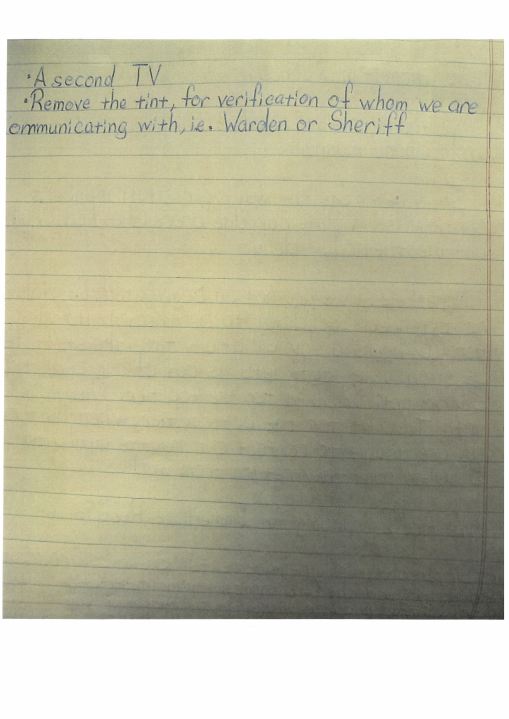 ·A second TV
·Remove the tint, for verification of whom we are
ommunicating with, ie. Warden or Sheriff